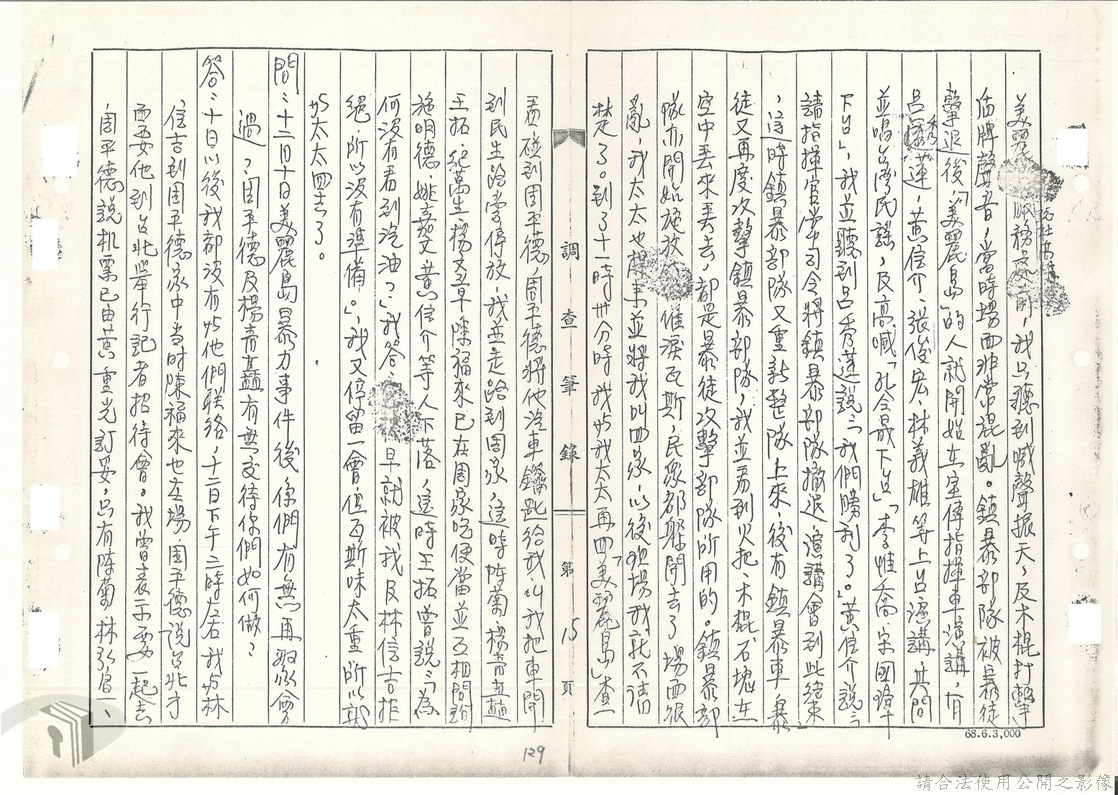 美麗島服務處前,我只聽到喊聲振天,及木棍打擊
盾牌聲音,當時場面非常混亂。鎮暴部隊被暴徒
擊退後「美麗島」的人就開始在宣傳指揮車演講,有
呂秀蓮,黃信介、張俊宏、林義雄等上台演講,其間
並唱台灣民謠,及高喊「孔令晟下台」「李惟喬、宋國璋
下台」,我並聽到呂秀蓮說:「我們勝利了。」黃信介說:「
請指揮官常司令將鎮暴部隊撤退演講會到此結束
,這時鎮暴部隊又重新整隊上來,後有鎮暴車,暴
徒又再度攻擊鎮暴部隊,我並看到火把、木棍、石塊在
空中丟來丟去,都是暴徒攻擊部隊所用的。鎮暴部
隊亦開始施放催淚瓦斯,民眾都躲開去了,場面很
亂,我太太也趕來並將我叫回家,以後現場我就不清
楚了。到了十一時卅分時我與我太太再回「美麗島」查
看碰到周平德,周平德將他汽車鑰匙給我,叫我把車開
到民生路旁停放,我並走路到周家,這時陳菊、楊青矗
王拓、紀萬生、楊文章、陳福來已在周家吃便當並互相問詢
施明德、姚嘉文、黃信介等人下落,這時王拓曾說:「為
何沒有看到汽油?」我答:早就被我及林信吉拒
絕,所以沒有準備。」,我又停留一會,但瓦斯味太重所以就
與太太回去了。
問:十二月十日美麗島暴力事件後,你們有無再聚會
過?周平德及楊青矗有無交待你們如何做?
答:十日以後我都沒有與他們联絡,十二日下午三時左右我與林
信吉到周平德家中當時陳福來也在場周平德說台北方
面要他到台北舉行記者招待會。我曾表示要一起去
周平德說机票已由蔡重光訂妥,只有陳菊、林弘宣、
調查筆錄
第15頁
129
68.6.3,000
請合法使用公開之影像